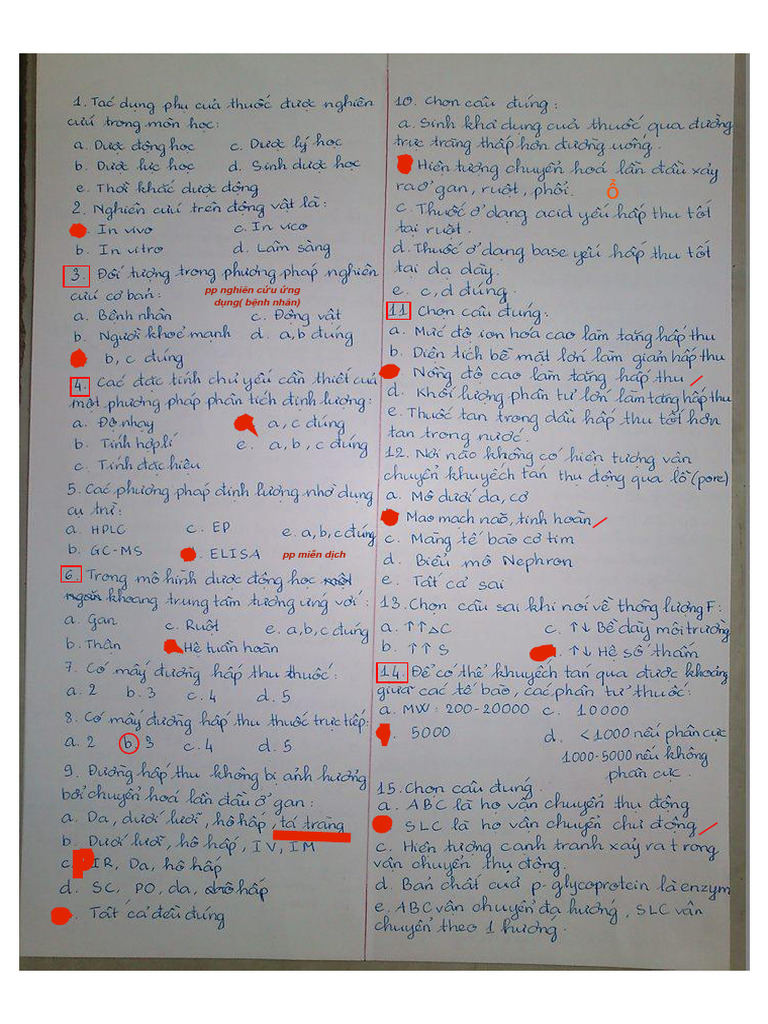 1. Tác dụng phụ của thuốc được nghiên
cứu trong môn học:
a. Dược động học c. Dược lý học
b. Dược lực học d. Sinh dược học
e. Thời khắc dược động
2. Nghiên cứu trên động vật là:
. In vivo c. In vico
b. In vitro d. Lâm sàng
3. Đối tượng trong phương pháp nghiên
cứu cơ bản:
pp nghiên cứu ứng
dụng( bệnh nhân)
a. Bệnh nhân c. Động vật
b. Người khoẻ mạnh d. a,b đúng
b, c đúng
4. Các đặc tính chủ yếu cần thiết của
một phương pháp phân tích định lượng:
a. Độ nhạy a, c đúng
b. Tính hợp lí e. a, b, c đúng
c. Tính đặc hiệu
5. Các phương pháp định lượng nhờ dụng
cụ trừ:
a. HPLC c. EP e. a, b, c đúng
b. GC-MS . ELISA pp miễn dịch
6. Trong mô hình dược động học một
ngăn khoang trung tâm tương ứng với:
a. Gan c. Ruột e. a, b, c đúng
b. Thận Hệ tuần hoàn
7. Có mấy đường hấp thu thuốc:
a. 2 b. 3 c. 4 d. 5
8. Có mấy đường hấp thu thuốc trực tiếp:
a. 2 b. 3 c. 4 d. 5
9. Đường hấp thu không bị ảnh hưởng
bởi chuyển hoá lần đầu ở gan:
a. Da, dưới lưỡi, hô hấp, tá tràng
b. Dưới lưỡi, hô hấp, IV, IM
c. IR, Da, hô hấp
d. SC, PO, da, hô hấp
. Tất cả đều đúng
10. Chọn câu đúng:
a. Sinh khả dụng của thuốc qua đường
trực tràng thấp hơn đường uống.
Hiện tượng chuyển hoá lần đầu xảy
ra ở gan, ruột, phổi. Ổ
c. Thuốc ở dạng acid yếu hấp thu tốt
tại ruột.
d. Thuốc ở dạng base yếu hấp thu tốt
tại dạ dày.
e. c, d đúng.
11 Chọn câu đúng:
a. Mức độ ion hoá cao làm tăng hấp thu
b. Diện tích bề mặt lớn làm giảm hấp thu
Nồng độ cao làm tăng hấp thu
d. Khối lượng phân tử lớn làm tăng hấp thu
e. Thuốc tan trong dầu hấp thu tốt hơn
tan trong nước.
12. Nơi nào không có hiện tượng vận
chuyển khuyếch tán thụ động qua lỗ (pore)
a. Mô dưới da, cơ
Mao mạch não, tinh hoàn
c. Màng tế bào cơ tim
d. Biểu mô Nephron
e. Tất cả sai
13. Chọn câu sai khi nói về thông lượng F:
a. ↑↑ΔC c. ↑↓ Bề dày môi trường
b. ↑↑ S . ↑↓ Hệ số thấm
14. Để có thể khuyếch tán qua được khoảng
giữa các tế bào, các phân tử thuốc:
a. MW: 200-20000 c. 10000
. 5000 d. <1000 nếu phân cực
1000-5000 nếu không
phân cực.
15. Chọn câu đúng.
a. ABC là họ vận chuyển thụ động
SLC là họ vận chuyển chủ động
c. Hiện tượng cạnh tranh xảy ra trong
vận chuyển thụ động.
d. Bản chất của p-glycoprotein là enzym
e. ABC vận chuyển đa hướng, SLC vận
chuyển theo 1 hướng.